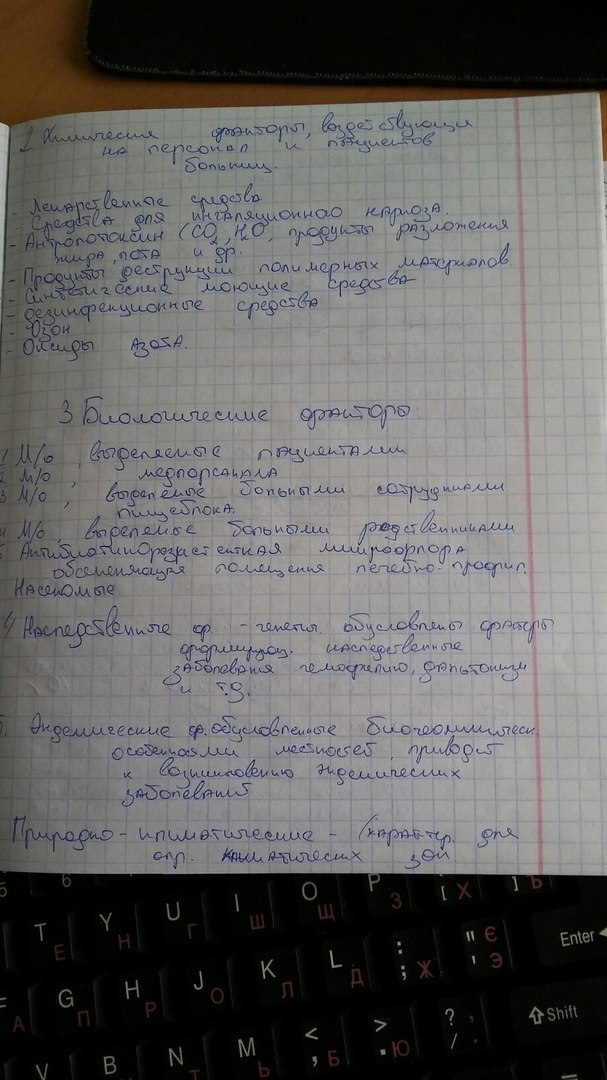 2 Химические факторы, воздействующие
на персонал и пациентов
больниц.
- Лекарственные средства
- Средства для ингаляционного наркоза.
- Антропотоксин (CO2, H2O, продукты разложения
жира, пота и др.
- Продукты деструкции полимерных материалов
- Синтетические моющие средства
- дезинфекционные средства
- Озон
- Оксиды азота.
3 Биологические факторы
1 М/о, выделяемые пациентами
2 М/о, медперсонала
3 М/о, выделяемые больными сотрудниками
пищеблока.
4 М/о, выделяемые больными родственниками
5 Антибиотикорезистентная микрофлора
обсеменяющая помещения лечебно-профил.
Насекомые
4) Наследственные ф. - генетич. обусловлены факторы
формирующ. наследственные
заболевания гемофилию, дальтонизм
и т.д.
5. Эндемические ф. обусловленные биогеохимическ.
особенностями местностей, приводят
к возникновению эндемических
заболеваний
Природно-климатические - (характер. для
опр. климатических зон.
6
T Е
Y Н
U Г
I Ш
O Щ
P З
[ Х
] Ъ
А
G П
H Р
J О
K Л
L Д
: ; Ж
" ' Є Э
Enter
V
B
N Т
M Ь
< , Б
> . Ю
? / , .
Shift